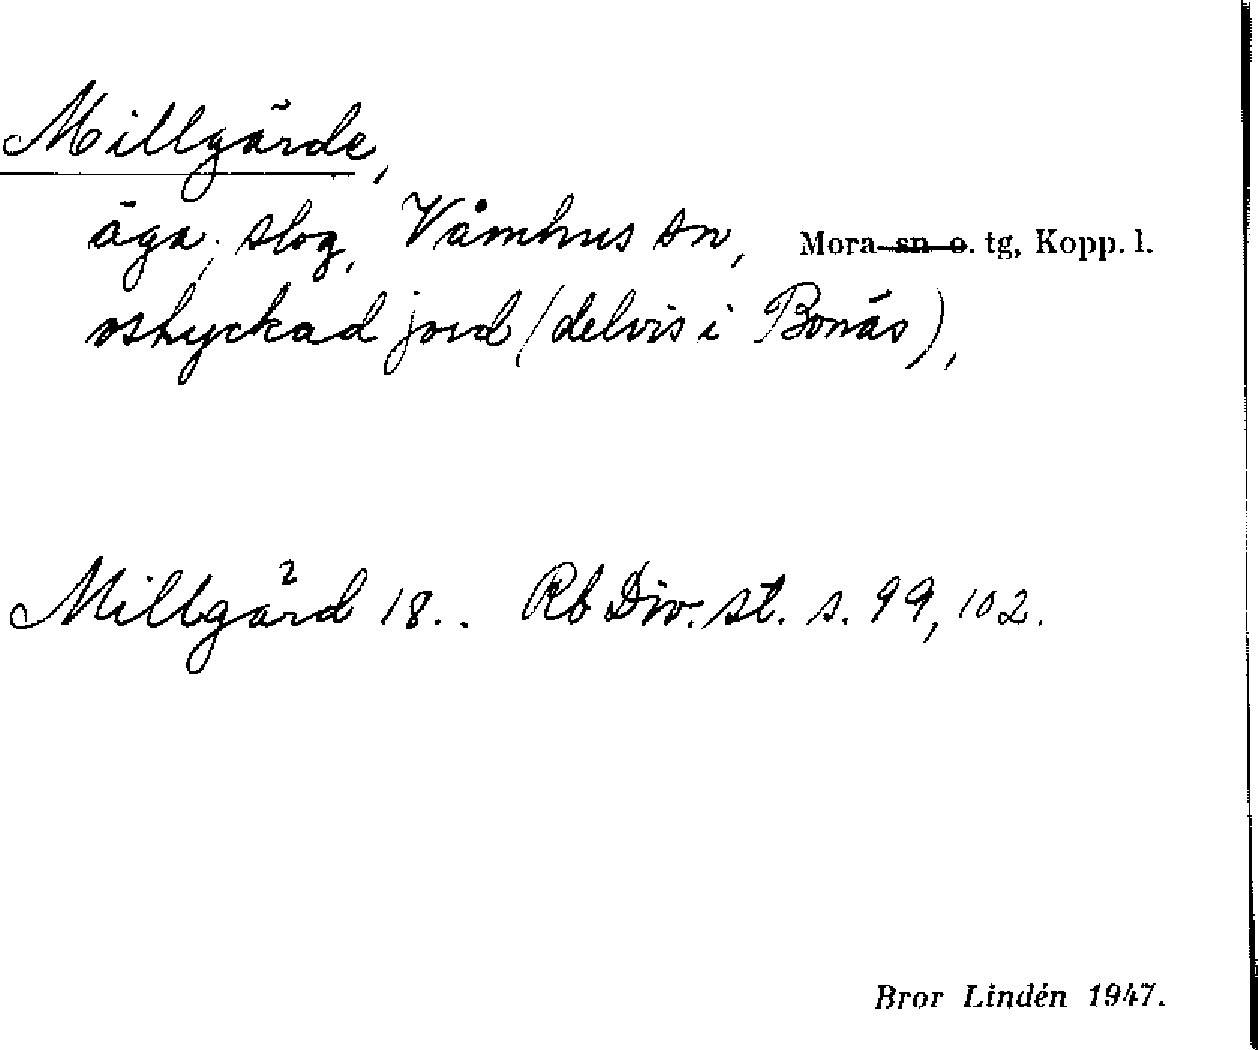 Millgärde,
äga; slog, Våmhus sn, Mora sn o. tg, Kopp. l.
ostyckad jord (delvis i Bonäs),
Millgärd 18.. Rb Div. st. s. 99, 102.
Bror Lindén 1947.